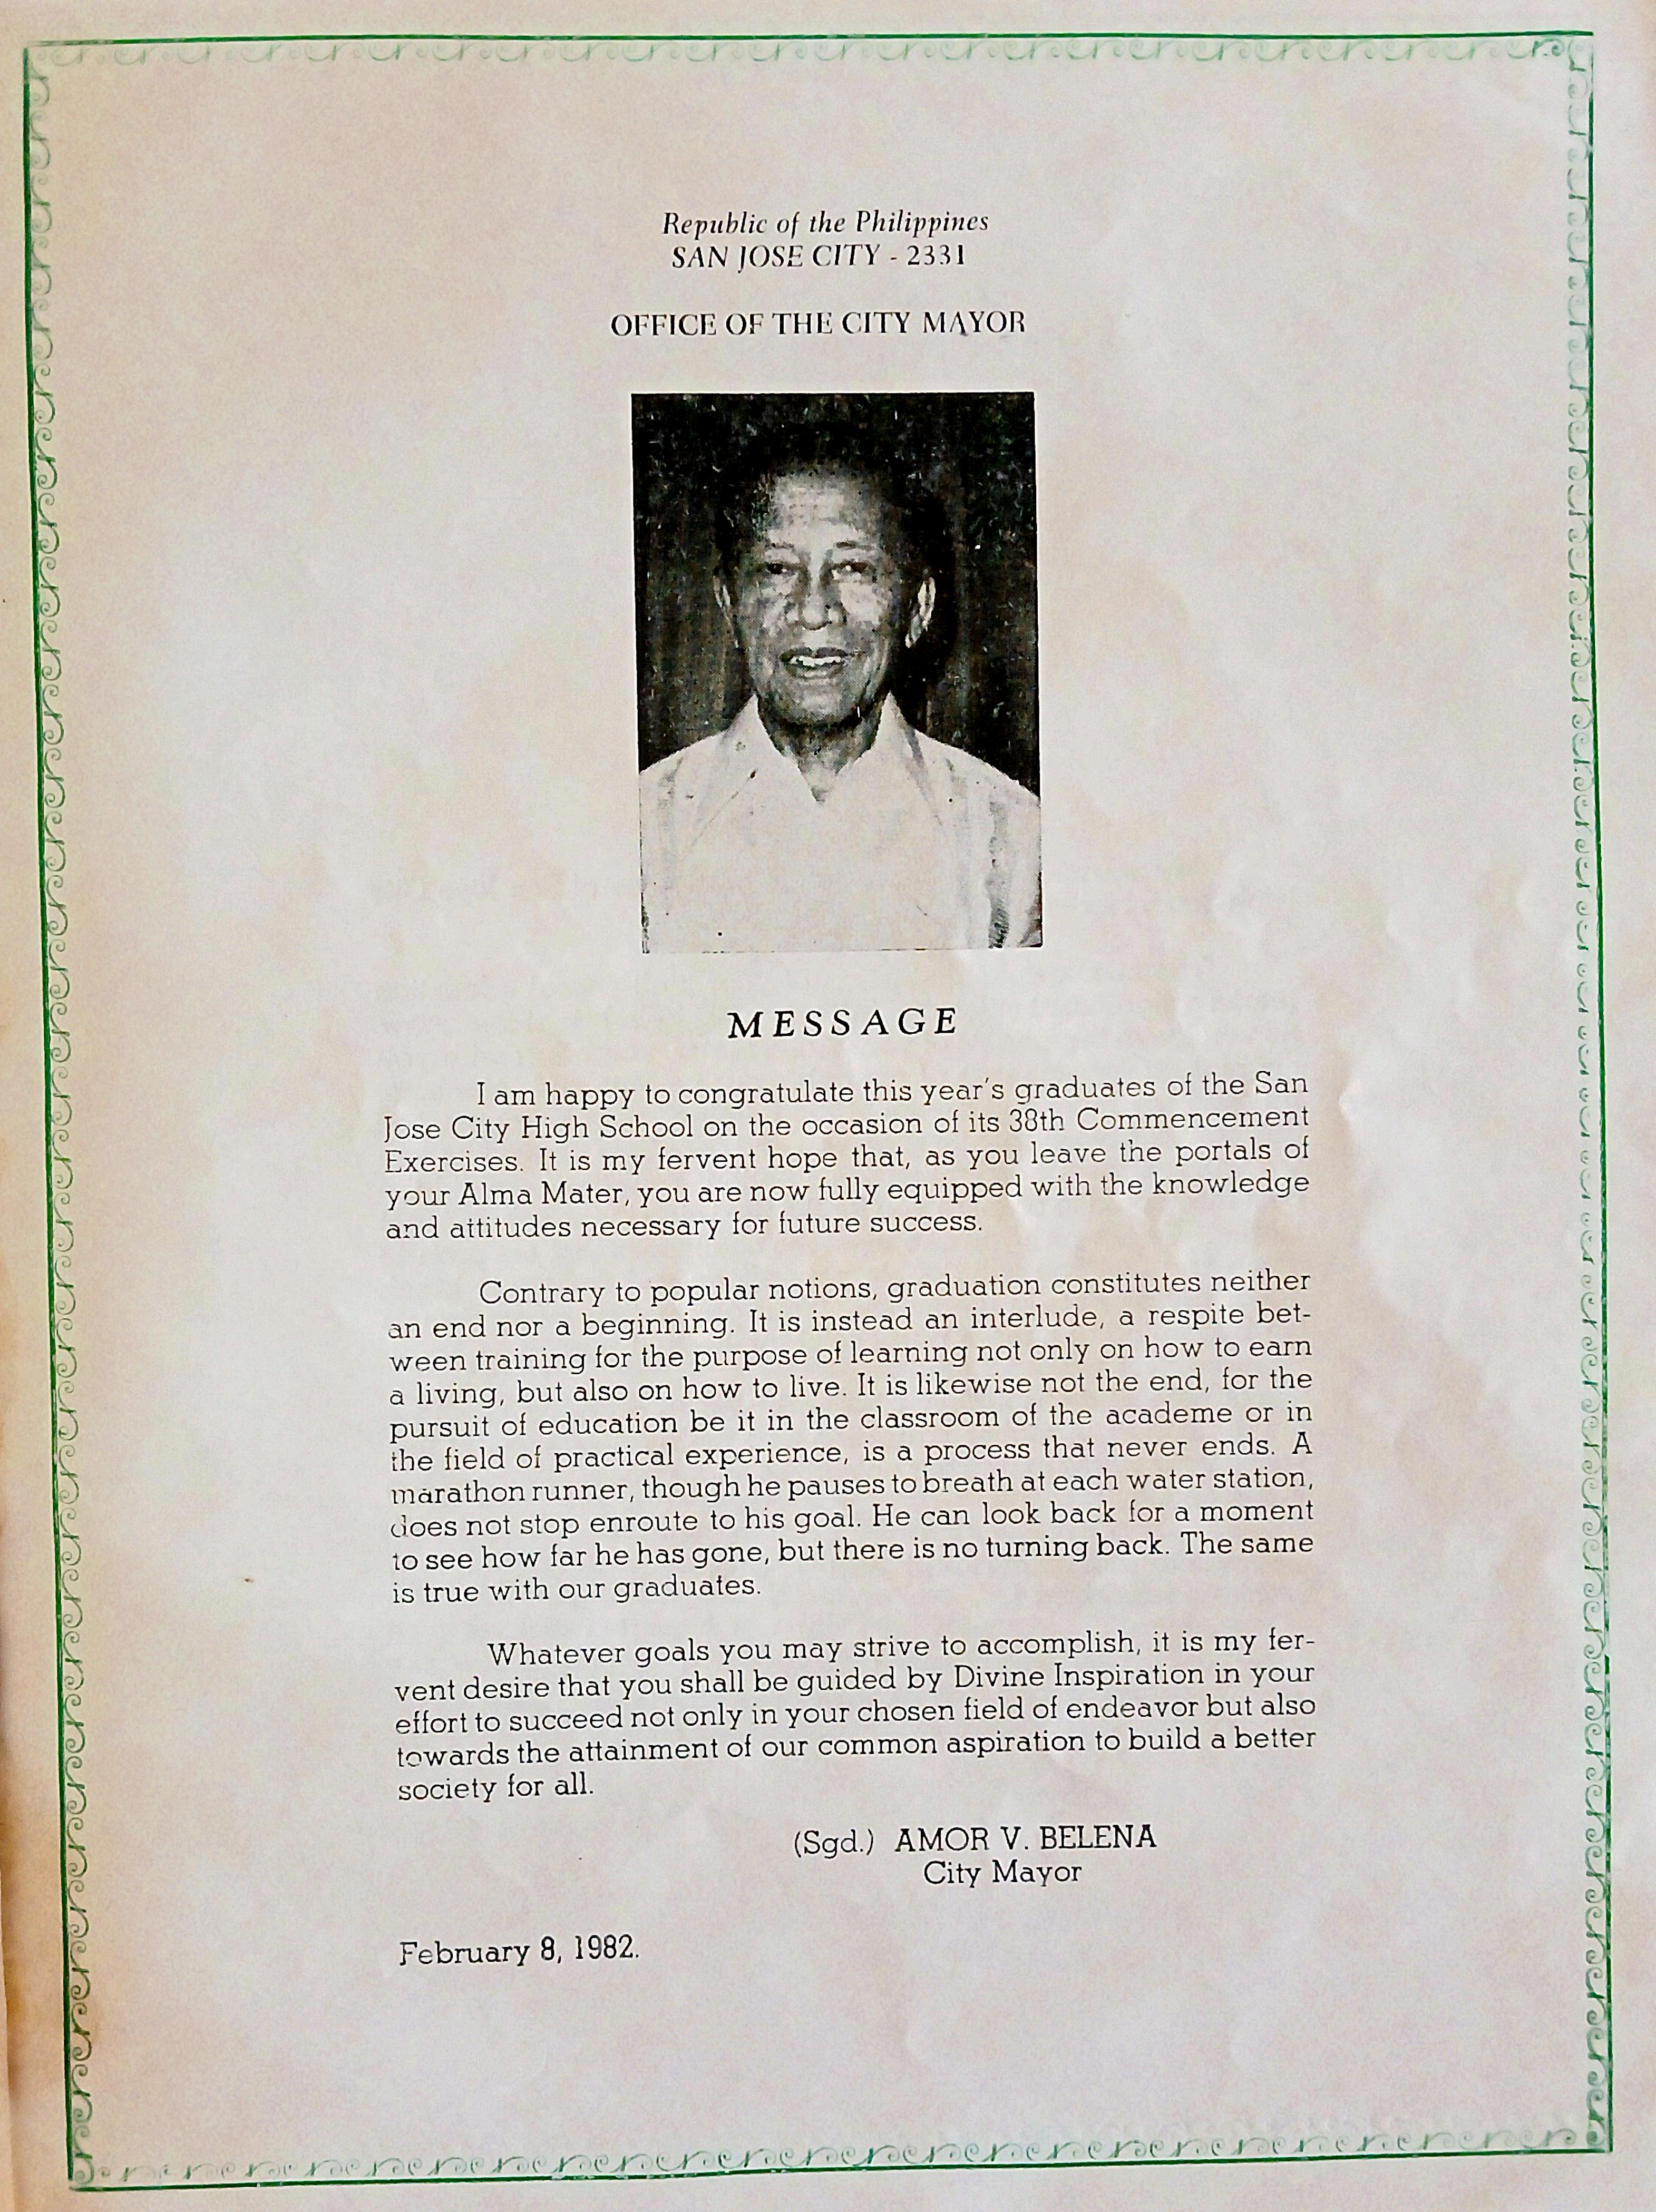 Republic of the Philippines
SAN JOSE CITY - 2331
OFFICE OF THE CITY MAYOR
MESSAGE
I am happy to congratulate this year's graduates of the San
Jose City High School on the occasion of its 38th Commencement
Exercises. It is my fervent hope that, as you leave the portals of
your Alma Mater, you are now fully equipped with the knowledge
and attitudes necessary for future success.
Contrary to popular notions, graduation constitutes neither
an end nor a beginning. It is instead an interlude, a respite bet-
ween training for the purpose of learning not only on how to earn
a living, but also on how to live. It is likewise not the end, for the
pursuit of education be it in the classroom of the academe or in
the field of practical experience, is a process that never ends. A
marathon runner, though he pauses to breath at each water station,
does not stop enroute to his goal. He can look back for a moment
to see how far he has gone, but there is no turning back. The same
is true with our graduates.
Whatever goals you may strive to accomplish, it is my fer-
vent desire that you shall be guided by Divine Inspiration in your
effort to succeed not only in your chosen field of endeavor but also
towards the attainment of our common aspiration to build a better
society for all.
(Sgd.) AMOR V. BELENA
City Mayor
February 8, 1982.